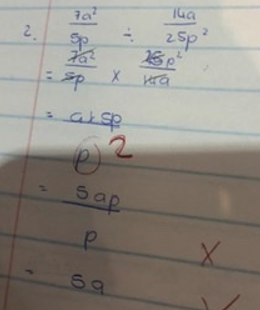 2. 7a²/5p ÷ 14a/25p²
= 7a²/5p × 25p²/14a
= a×5p
p 2
= 5ap
p
= 5a
×